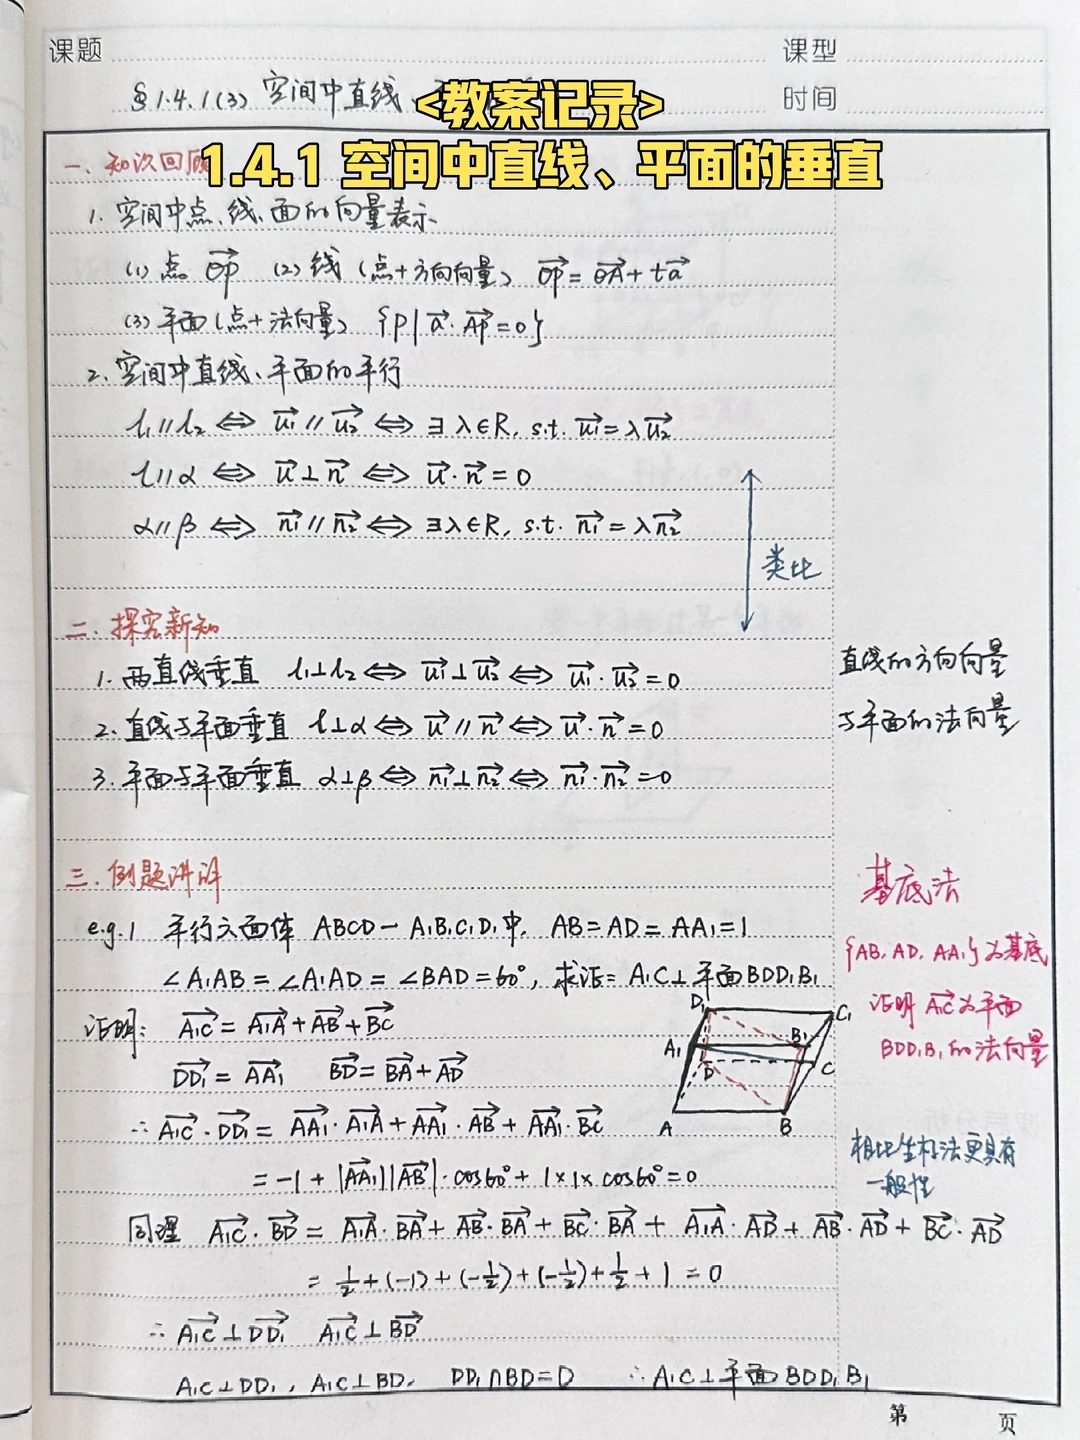 课题
课型
§1.4.1(3) 空间中直线、
时间
<教案记录>
1.4.1 空间中直线、平面的垂直
一、知识回顾
1. 空间中点、线、面的向量表示
(1) 点 $\overrightarrow{OP}$ (2) 线 (点+方向向量) $\overrightarrow{OP}=\overrightarrow{OA}+t\overrightarrow{a}$
(3) 平面 (点+法向量) {P|$\overrightarrow{a}\cdot\overrightarrow{AP}$=0}
2. 空间中直线、平面的平行
l₁∥l₂ ⇔ $\overrightarrow{u_1}$∥$\overrightarrow{u_2}$ ⇔ ∃λ∈R, s.t. $\overrightarrow{u_1}=λ\overrightarrow{u_2}$
l∥α ⇔ $\overrightarrow{u}$⊥$\overrightarrow{n}$ ⇔ $\overrightarrow{u}\cdot\overrightarrow{n}$=0
α∥β ⇔ $\overrightarrow{n_1}$∥$\overrightarrow{n_2}$ ⇔ ∃λ∈R, s.t. $\overrightarrow{n_1}=λ\overrightarrow{n_2}$
类比
二、探究新知
1. 两直线垂直 l₁⊥l₂ ⇔ $\overrightarrow{u_1}$⊥$\overrightarrow{u_2}$ ⇔ $\overrightarrow{u_1}\cdot\overrightarrow{u_2}$=0
2. 直线与平面垂直 l⊥α ⇔ $\overrightarrow{u}$∥$\overrightarrow{n}$ ⇔ $\overrightarrow{u}\cdot\overrightarrow{n}$=0
3. 平面与平面垂直 α⊥β ⇔ $\overrightarrow{n_1}$⊥$\overrightarrow{n_2}$ ⇔ $\overrightarrow{n_1}\cdot\overrightarrow{n_2}$=0
直线的方向向量
与平面的法向量
三、例题讲评
e.g.1 平行六面体 ABCD-A₁B₁C₁D₁中, AB=AD=AA₁=1
∠A₁AB=∠A₁AD=∠BAD=60°, 求证: A₁C⊥平面BDD₁B₁
证明: $\overrightarrow{A_1C}=\overrightarrow{A_1A}+\overrightarrow{AB}+\overrightarrow{BC}$
$\overrightarrow{DD_1}=\overrightarrow{AA_1}$ $\overrightarrow{BD}=\overrightarrow{BA}+\overrightarrow{AD}$
∴ $\overrightarrow{A_1C}\cdot\overrightarrow{DD_1}=\overrightarrow{AA_1}\cdot\overrightarrow{A_1A}+\overrightarrow{AA_1}\cdot\overrightarrow{AB}+\overrightarrow{AA_1}\cdot\overrightarrow{BC}$
=-1+|$\overrightarrow{AA_1}$||$\overrightarrow{AB}$|·cos60°+1×1×cos60°=0
同理 $\overrightarrow{A_1C}\cdot\overrightarrow{BD}=\overrightarrow{A_1A}\cdot\overrightarrow{BA}+\overrightarrow{AB}\cdot\overrightarrow{BA}+\overrightarrow{BC}\cdot\overrightarrow{BA}+\overrightarrow{A_1A}\cdot\overrightarrow{AD}+\overrightarrow{AB}\cdot\overrightarrow{AD}+\overrightarrow{BC}\cdot\overrightarrow{AD}$
=$\frac{1}{2}$+(-1)+(-$\frac{1}{2}$)+(-$\frac{1}{2}$)+$\frac{1}{2}$+1=0
∴ $\overrightarrow{A_1C}$⊥$\overrightarrow{DD_1}$ $\overrightarrow{A_1C}$⊥$\overrightarrow{BD}$
A₁C⊥DD₁, A₁C⊥BD, DD₁∩BD=D ∴ A₁C⊥平面BDD₁B₁
D₁
C₁
A₁
B₁
D
C
A
B
基底法
{AB, AD, AA₁}为基底
证明 $\overrightarrow{A_1C}$为平面
BDD₁B₁的法向量
相比坐标法更具有
一般性
第 页